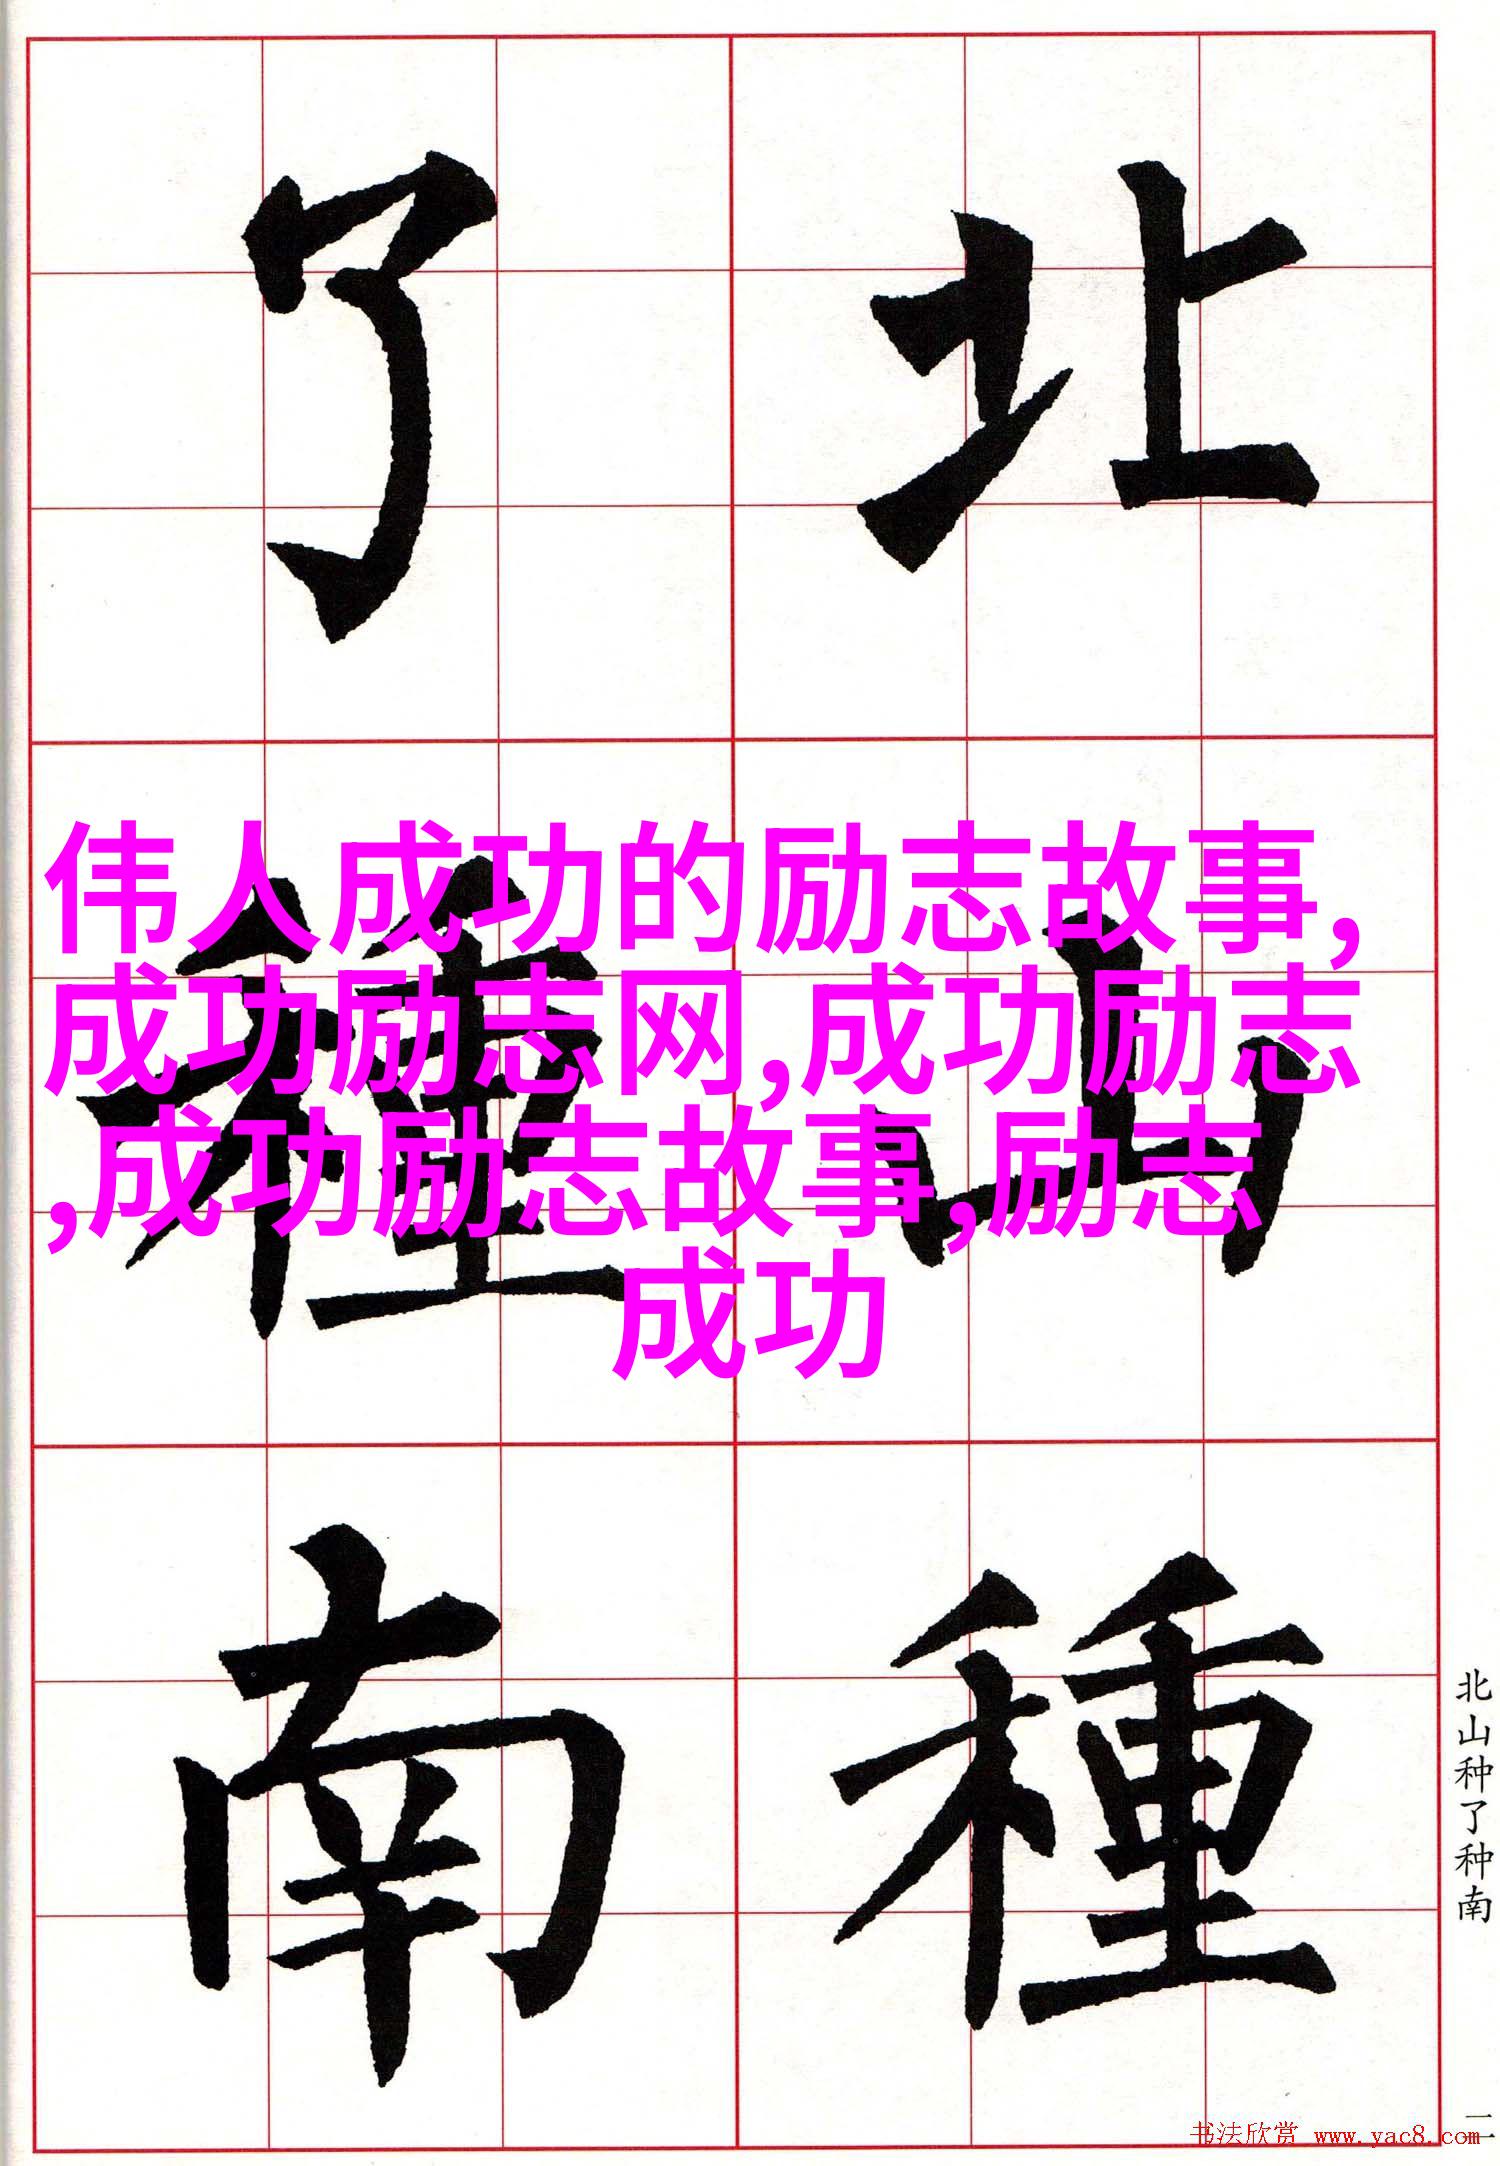 北山種
了種南
伟人成功的励志故事,
成功励志网,成功励志
,成功励志故事,励志
成功
北山种了种南
二
书法欣赏 www.yac8.com